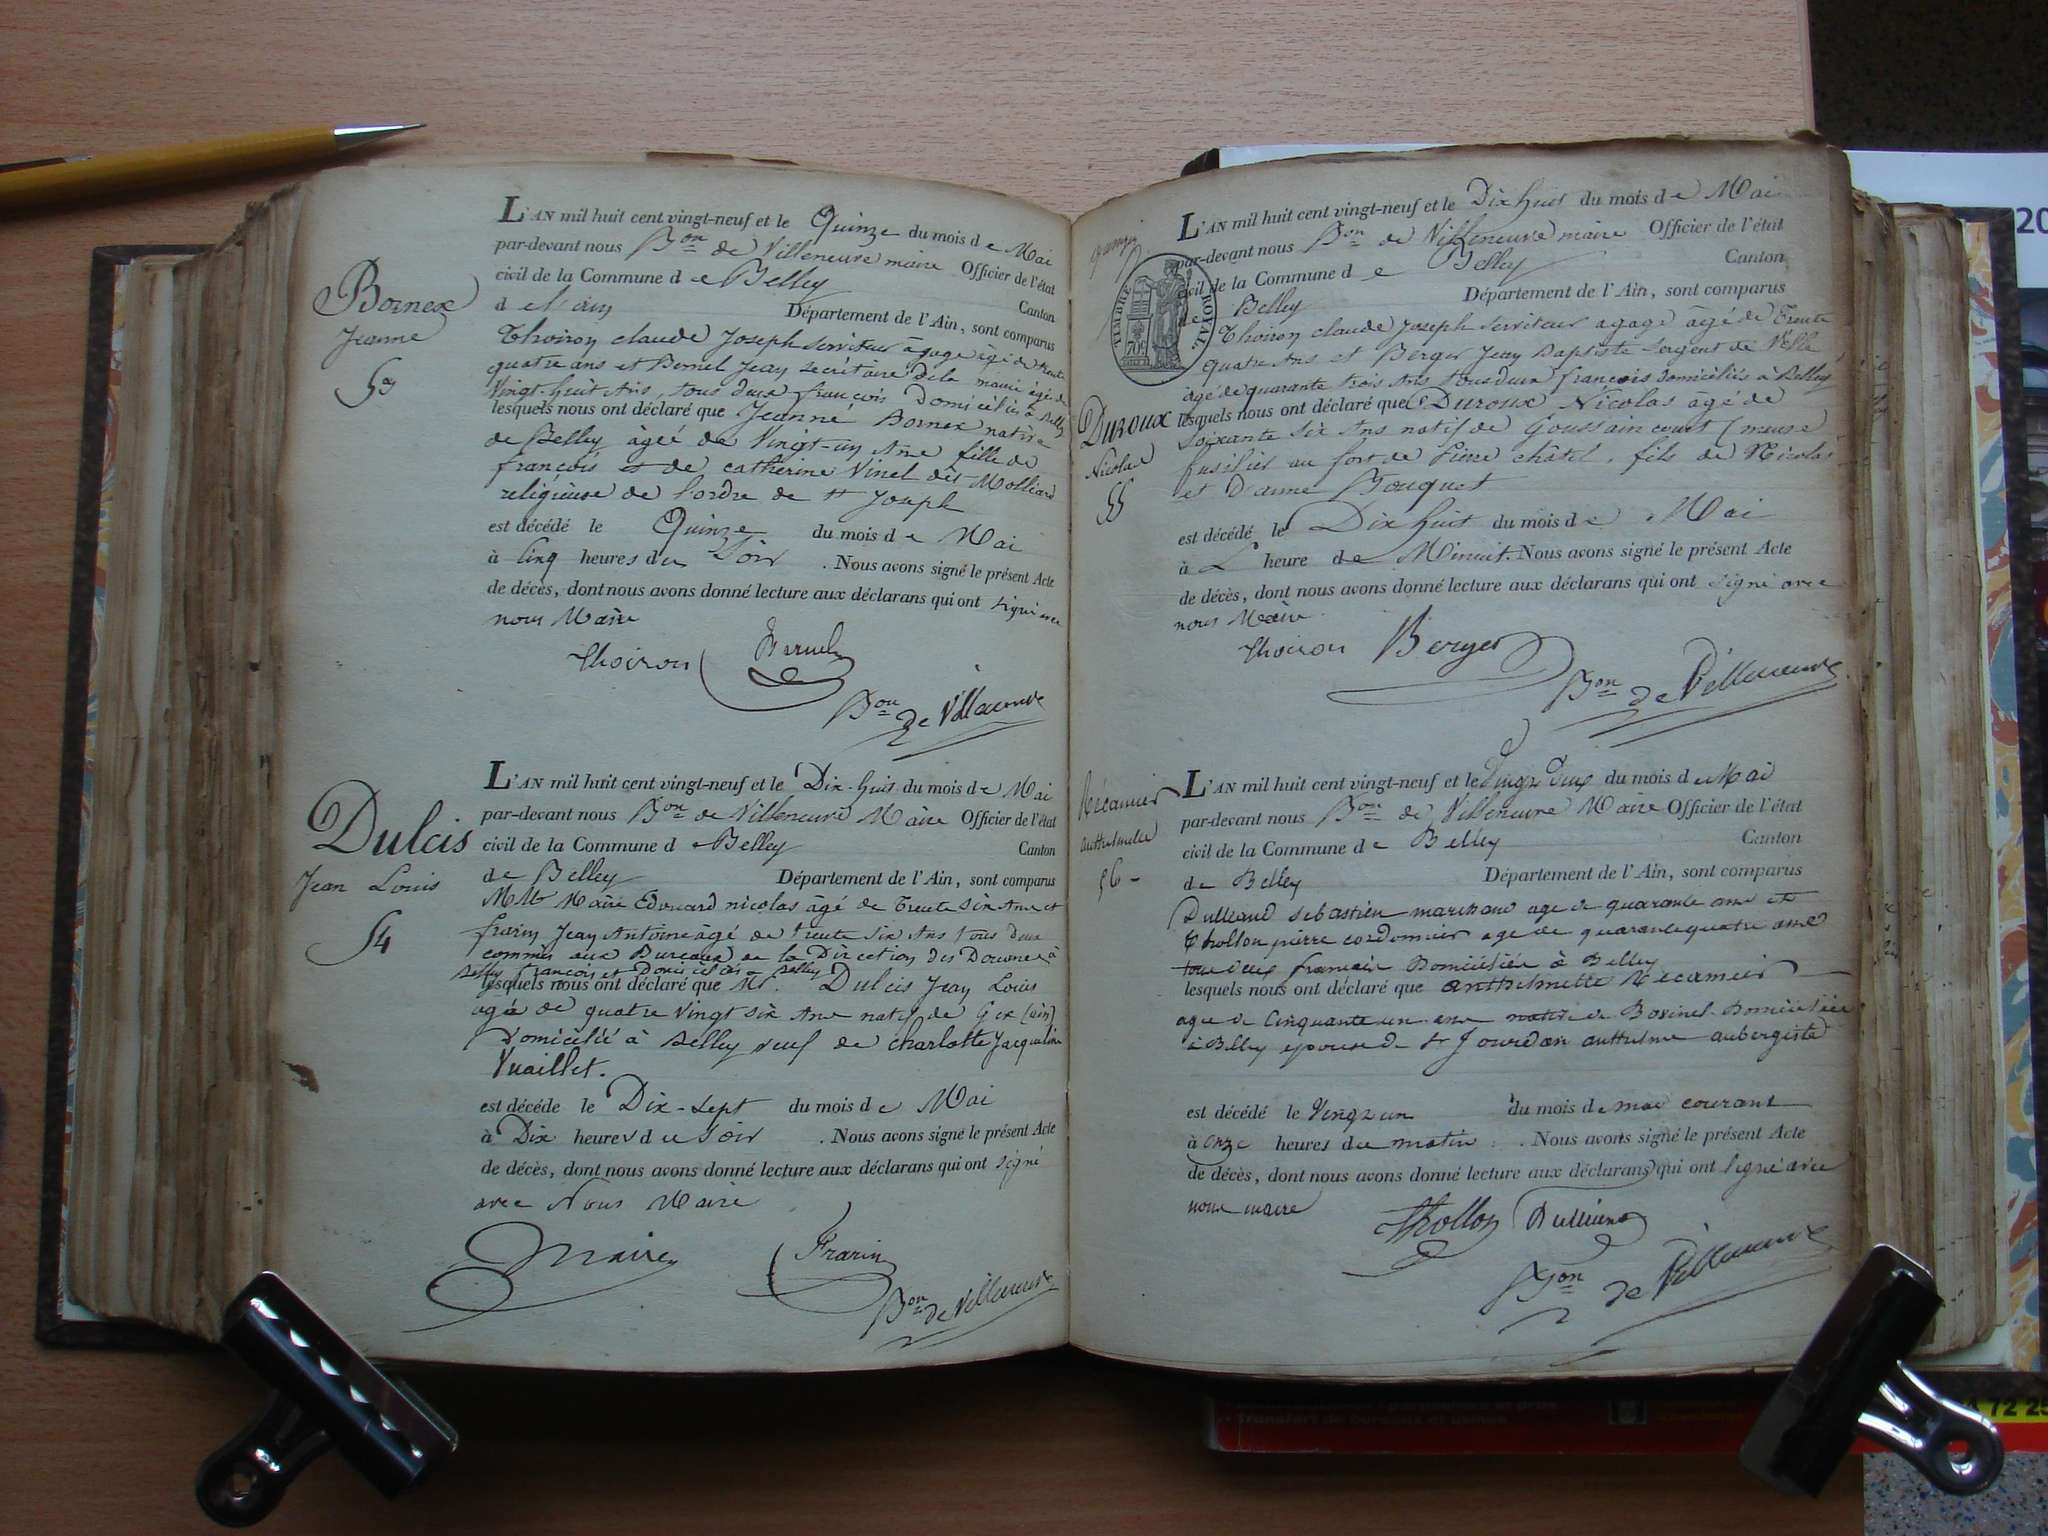 Bornex
Jeanne
53
L'AN mil huit cent vingt-neuf et le Quinze du mois de Mai
par-devant nous Bon de Villeneuve maire Officier de l'état
civil de la Commune de Belley Canton
d Département de l'Ain, sont comparus
Thoiron claude Joseph serviteur à gage âgé de trente
quatre ans et Bernel Jean secrétaire de la mairie âgé de
Vingt-huit Ans, tous deux françois Domiciliés à Belley
lesquels nous ont déclaré que Jeanne Bornex native
de Belley âgée de Vingt-un Ans fille de
françois et de catherine Vinel dit Molliard
religieuse de l'ordre de st Joseph
est décédé le Quinze du mois de Mai
à Cinq heures du Soir . Nous avons signé le présent Acte
de décès, dont nous avons donné lecture aux déclarans qui ont signé avec
nous Maire
Thoiron
Bon de Villeneuve
Dulcis
Jean Louis
54
L'AN mil huit cent vingt-neuf et le Dix-huit du mois de Mai
par-devant nous Bon de Villeneuve Maire Officier de l'état
civil de la Commune de Belley Canton
de Belley Département de l'Ain, sont comparus
MM Maire Edouard nicolas âgé de Trente six Ans et
frarin Jean Antoine âgé de trente six Ans tous deux
commis aux Bureaux de la Direction des Douanes à
Belley françois et Domiciliés à Belley
lesquels nous ont déclaré que Mr. Dulcis Jean Louis
agé de quatre Vingt six Ans natif de Gex (ain)
Domicilié à Belley veuf de charlotte Jacqueline
Vuaillet.
est décédé le Dix-sept du mois de Mai
à Dix heures du soir . Nous avons signé le présent Acte
de décès, dont nous avons donné lecture aux déclarans qui ont signé
avec Nous Maire
Maire Frarin
Bon de Villeneuve
TIMBRE ROYAL.
Duroux
Nicolas
55
L'AN mil huit cent vingt-neuf et le Dix huit du mois de Mai
par-devant nous Bon de Villeneuve maire Officier de l'état
civil de la Commune de Belley Canton
de Belley Département de l'Ain, sont comparus
Thoiron claude Joseph serviteur a gage âgé de Trente
quatre Ans et Berger Jean Baptiste sergent de Ville
âgé de quarante trois Ans tous deux françois domiciliés à Belley
lesquels nous ont déclaré que Duroux Nicolas âgé de
soixante six Ans natif de Goussaincourt (meuse
fusilier au fort de Pierre châtel, fils de Nicolas
et d'anne Bouquet
est décédé le Dix huit du mois de Mai
à L' heure de Minuit. Nous avons signé le présent Acte
de décès, dont nous avons donné lecture aux déclarans qui ont signé avec
nous Maire
Thoiron Berger
Bon de Villeneuve
Récamier
anthelmette
56 -
L'AN mil huit cent vingt-neuf et le Vingt Deux du mois de Mai
par-devant nous Bon de Villeneuve Maire Officier de l'état
civil de la Commune de Belley Canton
de Belley Département de l'Ain, sont comparus
Sebastien marchand age de quarante ans et
Thollon pierre cordonnier age de quarante quatre ans
tous deux français Domiciliés à Belley
lesquels nous ont déclaré que anthelmette Recamier
agee de Cinquante un ans native de Domiciliée
à Belley epouse de sr Jourdan anthelme aubergiste
est décédé le Vingt un du mois de mai courant
à onze heures du matin . Nous avons signé le présent Acte
de décès, dont nous avons donné lecture aux déclarans qui ont signé avec
nous maire
Thollon
Bon de Villeneuve
20
72 25